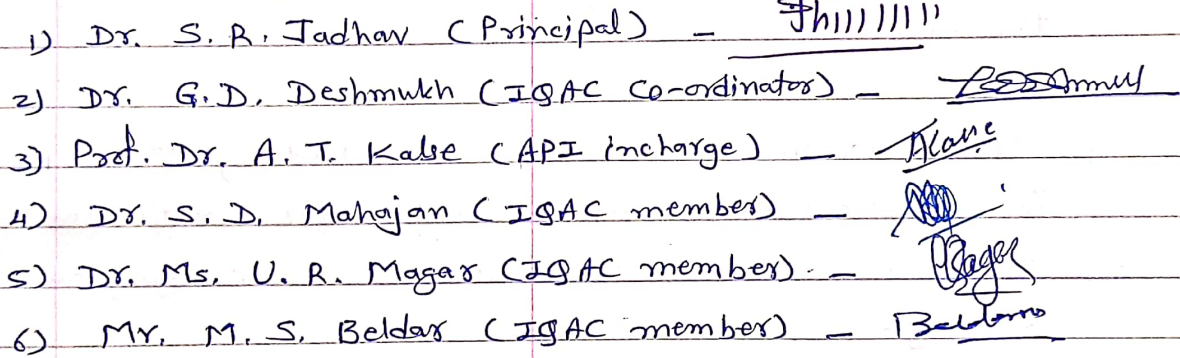 1) Dr. S. R. Jadhav (Principal) –
2) Dr. G. D. Deshmukh (IQAC Co-ordinator) –
3) Prof. Dr. A. T. Kalse (API incharge) –
4) Dr. S. D. Mahajan (IQAC member) –
5) Dr. Ms. U. R. Magar (IQAC member) –
6) Mr. M. S. Beldar (IQAC member) –